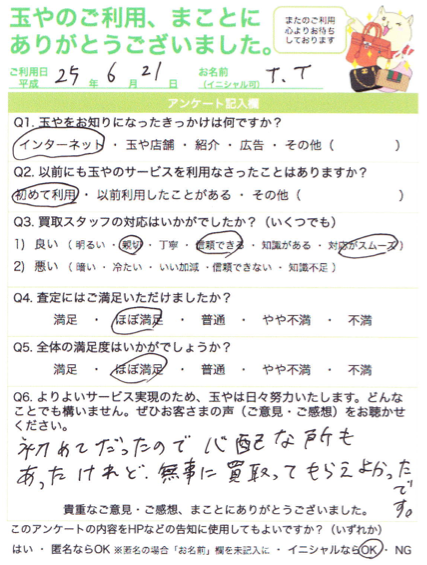 玉やのご利用、まことに
ありがとうございました。
またのご利用
心よりお待ち
しております
ご利用日
平成 25 年 6 月 21 日 お名前 (イニシャル可) T.T
アンケート記入欄
Q1. 玉やをお知りになったきっかけは何ですか？
インターネット ・ 玉や店舗 ・ 紹介 ・ 広告 ・ その他（　　　　）
Q2. 以前にも玉やのサービスを利用なさったことはありますか？
初めて利用 ・ 以前利用したことがある ・ その他（　　　　）
Q3. 買取スタッフの対応はいかがでしたか？（いくつでも）
1) 良い（ 明るい ・ 親切 ・ 丁寧 ・ 信頼できる ・ 知識がある ・ 対応がスムーズ ）
2) 悪い（ 暗い ・ 冷たい ・ いい加減 ・ 信頼できない ・ 知識不足 ）
Q4. 査定にはご満足いただけましたか？
満足 ・ ほぼ満足 ・ 普通 ・ やや不満 ・ 不満
Q5. 全体の満足度はいかがでしょうか？
満足 ・ ほぼ満足 ・ 普通 ・ やや不満 ・ 不満
Q6. よりよいサービス実現のため、玉やは日々努力いたします。どんな
ことでも構いません。ぜひお客さまの声（ご意見・ご感想）をお聴かせ
ください。
初めてだったので心配な所も
あったけれど、無事に買取ってもらえよかった
です。
貴重なご意見・ご感想、まことにありがとうございました。
このアンケートの内容をHPなどの告知に使用してもよいですか？（いずれか）
はい ・ 匿名ならOK ※匿名の場合「お名前」欄を未記入に ・ イニシャルならOK ・ NG